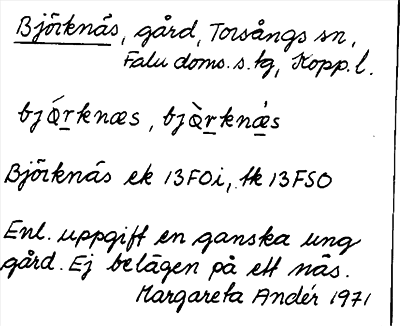 Björknäs, gård, Torsångs sn,
Falu doms. s. tg, Kopp. l.
bjǫ́rknæs, bjǫ̀rknæ̀s
Björknäs ek 13F0i, tk 13FSO
Enl. uppgift en ganska ung
gård. Ej belägen på ett näs.
Margareta Andér 1971